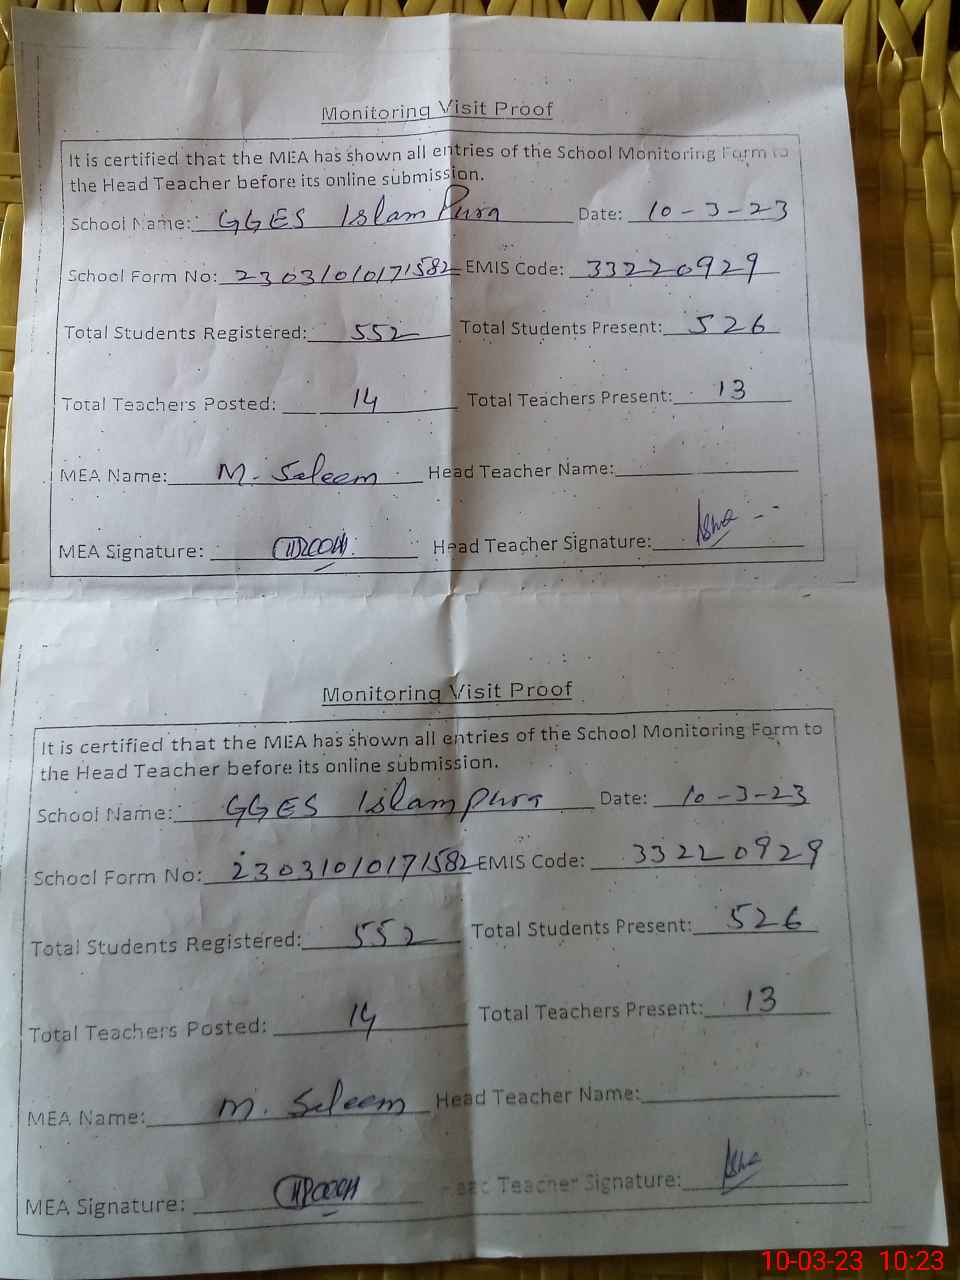 Monitoring Visit Proof
It is certified that the MEA has shown all entries of the School Monitoring Form to
the Head Teacher before its online submission.
School Name: GGES Islam Pura Date: 10-3-23
School Form No: 23031010171582 EMIS Code: 33220929
Total Students Registered: 552 Total Students Present: 526
Total Teachers Posted: 14 Total Teachers Present: 13
MEA Name: M. Saleem Head Teacher Name:
MEA Signature: Head Teacher Signature:
Monitoring Visit Proof
It is certified that the MEA has shown all entries of the School Monitoring Form to
the Head Teacher before its online submission.
School Name: GGES Islam Pura Date: 10-3-23
School Form No: 23031010171582 EMIS Code: 33220929
Total Students Registered: 552 Total Students Present: 526
Total Teachers Posted: 14 Total Teachers Present: 13
MEA Name: M. Saleem Head Teacher Name:
MEA Signature: Head Teacher Signature:
10-03-23 10:23